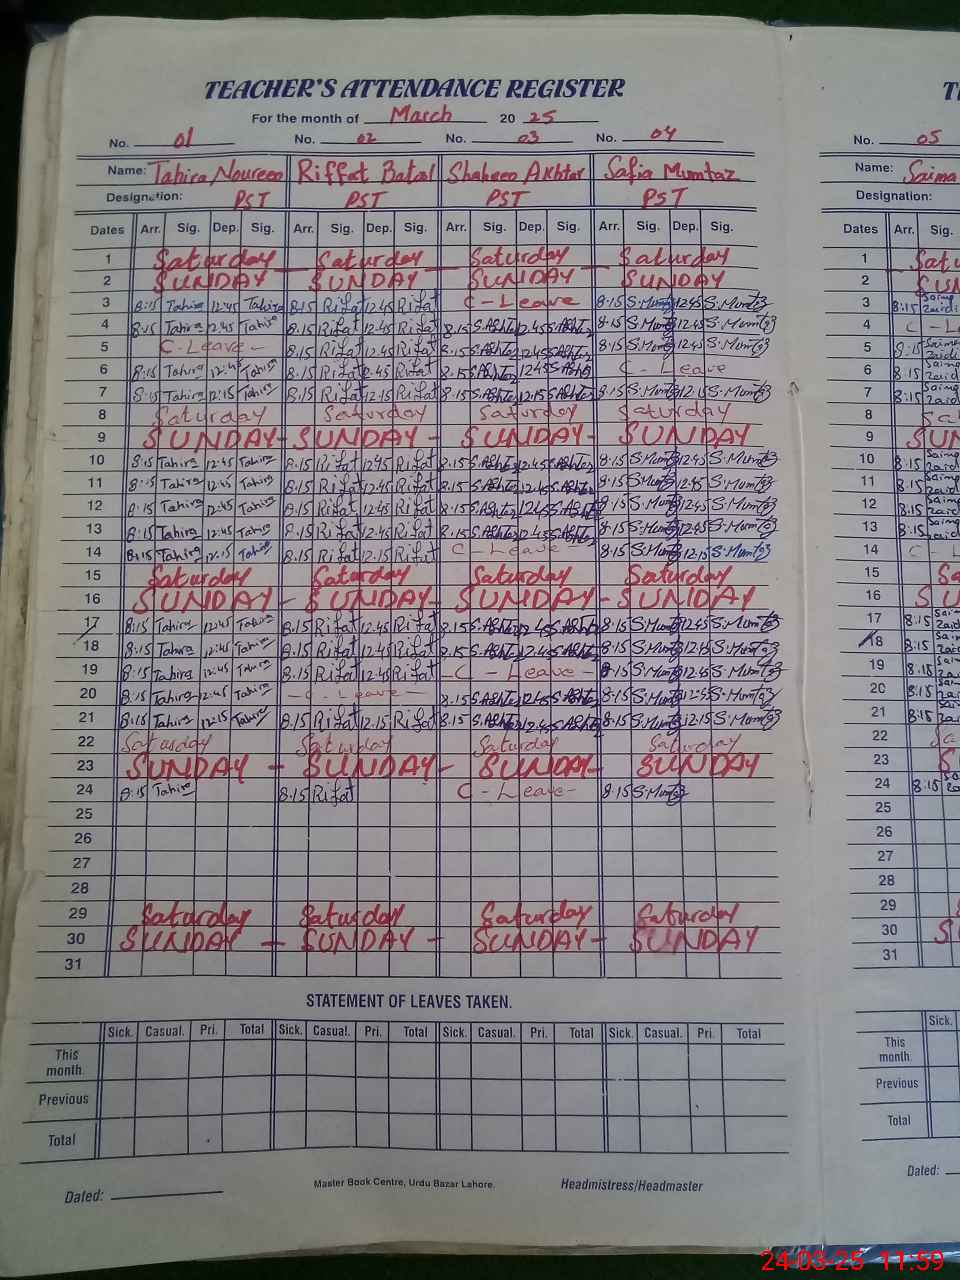 TEACHER'S ATTENDANCE REGISTER
For the month of March 20 25
No. 01 No. 02 No. 03 No. 04
Name: Tahira Noureen Riffat Batal Shaheen Akhtar Safia Mumtaz
Designation: PST PST PST PST
Dates Arr. Sig. Dep. Sig. Arr. Sig. Dep. Sig. Arr. Sig. Dep. Sig. Arr. Sig. Dep. Sig.
1 Saturday Saturday Saturday Saturday
2 SUNDAY SUNDAY SUNDAY SUNDAY
3 8:15 Tahira 12:45 Tahira 8.15 Rifat 12.45 Rifat C-Leave 8.15 S.Mumtaz 12.45 S.Mumtaz
4 8:15 Tahira 12:45 Tahira 8.15 Rifat 12.45 Rifat 8.15 S.Akhter 12.45 S.Akhter 8.15 S.Mumtaz 12.45 S.Mumtaz
5 C-Leave - 8.15 Rifat 12.45 Rifat 8.15 S.Akhter 12.45 S.Akhter 8.15 S.Mumtaz 12.45 S.Mumtaz
6 8:15 Tahira 12:45 Tahira 8.15 Rifat 12.45 Rifat 8.15 S.Akhter 12.45 S.Akhter C-Leave
7 8:15 Tahira 12:15 Tahira 8.15 Rifat 12.15 Rifat 8.15 S.Akhter 12.15 S.Akhter 8.15 S.Mumtaz 12.15 S.Mumtaz
8 Saturday Saturday Saturday Saturday
9 SUNDAY - SUNDAY - SUNDAY - SUNDAY
10 8:15 Tahira 12:45 Tahira 8.15 Rifat 12.45 Rifat 8.15 S.Akhter 12.45 S.Akhter 8.15 S.Mumtaz 12.45 S.Mumtaz
11 8:15 Tahira 12:45 Tahira 8.15 Rifat 12.45 Rifat 8.15 S.Akhter 12.45 S.Akhter 8.15 S.Mumtaz 12.45 S.Mumtaz
12 8:15 Tahira 12:45 Tahira 8.15 Rifat 12.45 Rifat 8.15 S.Akhter 12.45 S.Akhter 8.15 S.Mumtaz 12.45 S.Mumtaz
13 8:15 Tahira 12:45 Tahira 8.15 Rifat 12.45 Rifat 8.15 S.Akhter 12.45 S.Akhter 8.15 S.Mumtaz 12.45 S.Mumtaz
14 8:15 Tahira 12:15 Tahira 8.15 Rifat 12.15 Rifat C-Leave 8.15 S.Mumtaz 12.15 S.Mumtaz
15 Saturday Saturday Saturday Saturday
16 SUNDAY - SUNDAY - SUNDAY - SUNDAY
17 8:15 Tahira 12:45 Tahira 8.15 Rifat 12.45 Rifat 8.15 S.Akhter 12.45 S.Akhter 8.15 S.Mumtaz 12.45 S.Mumtaz
18 8:15 Tahira 12:45 Tahira 8.15 Rifat 12.45 Rifat 8.15 S.Akhter 12.45 S.Akhter 8.15 S.Mumtaz 12.45 S.Mumtaz
19 8:15 Tahira 12:45 Tahira 8.15 Rifat 12.45 Rifat - C-Leave - 8.15 S.Mumtaz 12.45 S.Mumtaz
20 8:15 Tahira 12:45 Tahira - C-Leave - 8.15 S.Akhter 12.45 S.Akhter 8.15 S.Mumtaz 12.45 S.Mumtaz
21 8:15 Tahira 12:15 Tahira 8.15 Rifat 12.15 Rifat 8.15 S.Akhter 12.45 S.Akhter 8.15 S.Mumtaz 12.15 S.Mumtaz
22 Saturday Saturday Saturday Saturday
23 SUNDAY - SUNDAY - SUNDAY - SUNDAY
24 8:15 Tahira 8.15 Rifat C-Leave - 8.15 S.Mumtaz
25
26
27
28
29 Saturday Saturday Saturday Saturday
30 SUNDAY - SUNDAY - SUNDAY - SUNDAY
31
STATEMENT OF LEAVES TAKEN.
Sick. Casual. Pri. Total Sick. Casual. Pri. Total Sick. Casual. Pri. Total Sick. Casual. Pri. Total
This
month.
Previous
Total
Dated:
Master Book Centre, Urdu Bazar Lahore.
Headmistress/Headmaster
No. 05
Name: Saima
Designation:
Dates Arr. Sig.
1
2
3 8:15 Saima Zaidi
4
5 8:15 Saima Zaidi
6 8:15 Saima Zaidi
7 8:15 Saima Zaidi
8
9
10 8:15
11 8:15
12 8:15
13 8:15
14
15
16
17 8:15
18 8:15
19 8:15
20 8:15
21 8:15
22
23
24 8:15
25
26
27
28
29
30
31
Sick.
This
month.
Previous
Total
Dated:
24-03-25 11:59